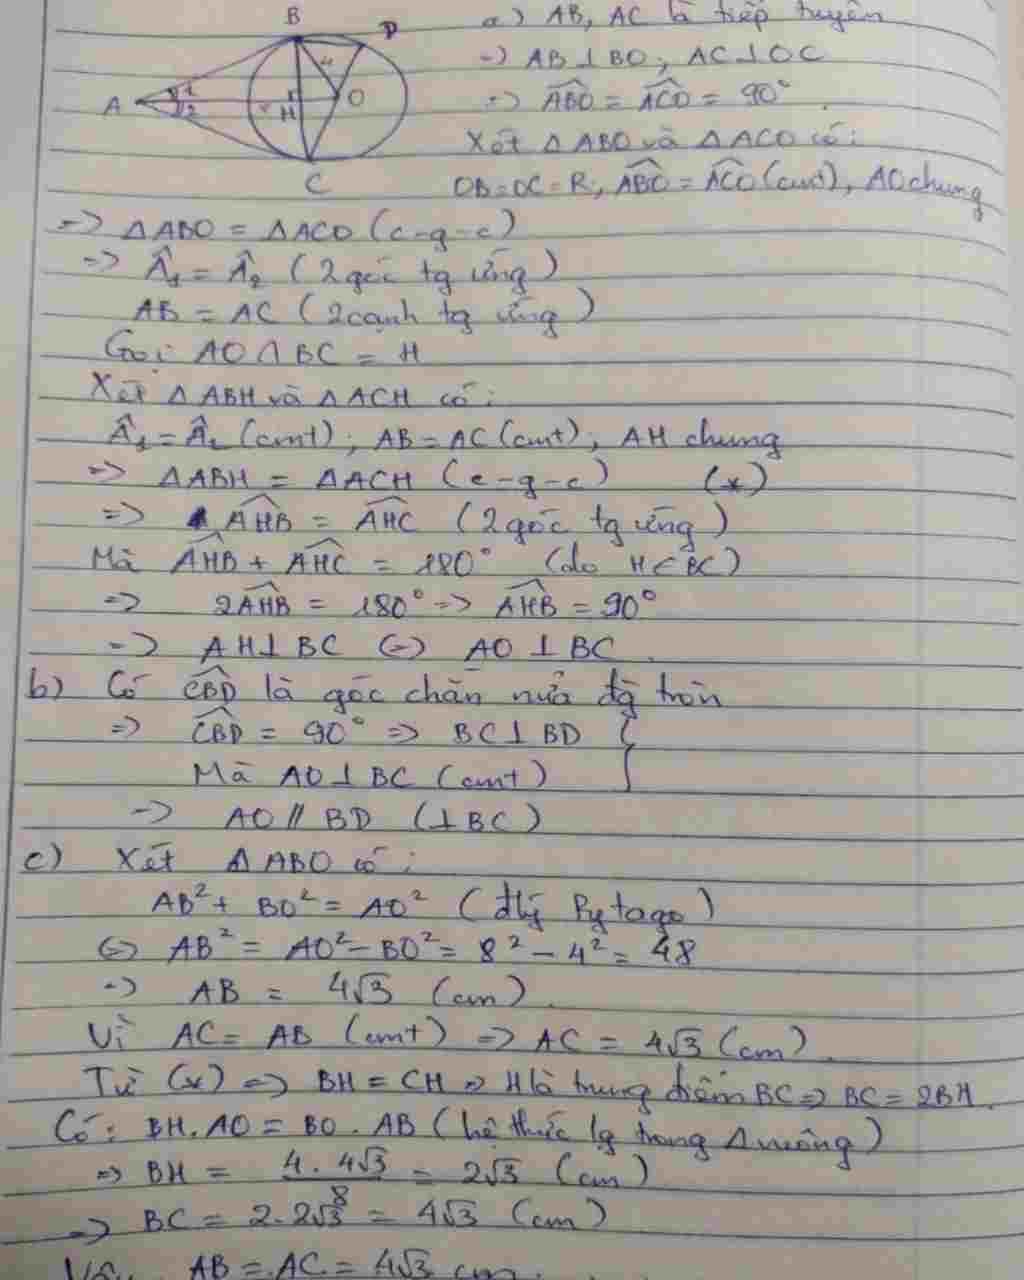 B
D
a) AB, AC là tiếp tuyến
4
=) AB ⊥ BO, AC ⊥ OC
A
1
2
H
O
=) ABO = ACO = 90°
Xét Δ ABO và Δ ACO có:
C
OB = OC = R, ABO = ACO (cmt), AO chung
=> Δ ABO = Δ ACO (c-g-c)
=> Â₁ = Â₂ (2 góc tg ứng)
AB = AC (2 cạnh tg ứng)
Gọi AO ∩ BC = H
Xét Δ ABH và Δ ACH có:
Â₁ = Â₂ (cmt); AB = AC (cmt); AH chung
=> Δ ABH = Δ ACH (c-g-c) (*)
=> AHB = AHC (2 góc tg ứng)
Mà AHB + AHC = 180° (do H ∈ BC)
=> 2AHB = 180° => AHB = 90°
=> AH ⊥ BC (=) AO ⊥ BC.
b) Có CBD là góc chắn nửa đg tròn
=> CBD = 90° => BC ⊥ BD
Mà AO ⊥ BC (cmt)
=> AO // BD (⊥ BC)
c) Xét Δ ABO có:
AB² + BO² = AO² (đlý Pytago)
(=) AB² = AO² - BO² = 8² - 4² = 48
=> AB = 4√3 (cm).
Vì AC = AB (cmt) => AC = 4√3 (cm).
Từ (*) => BH = CH => H là trung điểm BC => BC = 2BH.
Có: BH.AO = BO.AB (hệ thức lg trong Δ vuông)
=> BH = 4.4√3/8 = 2√3 (cm)
=> BC = 2.2√3 = 4√3 (cm)
Vậy AB = AC = 4√3 cm.